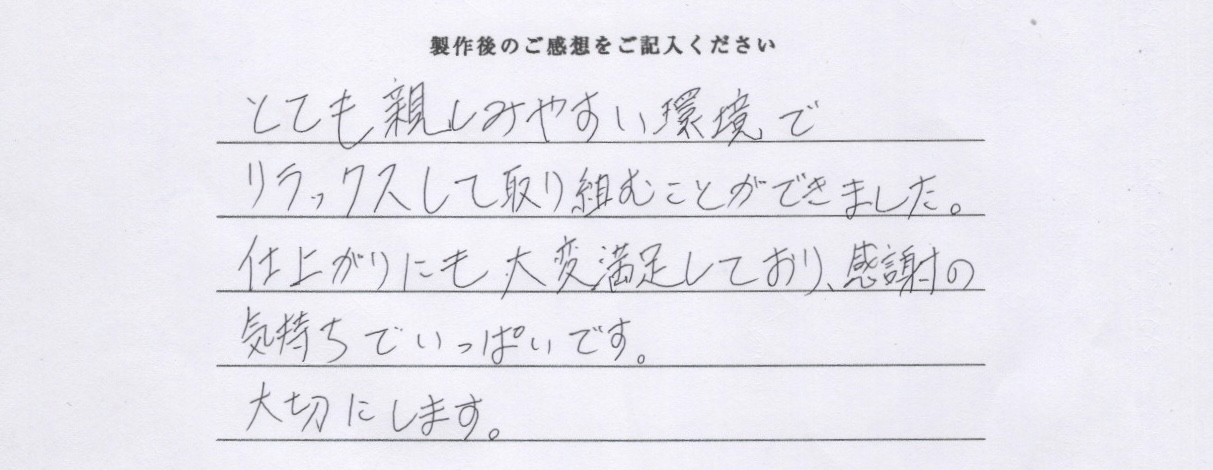 製作後のご感想をご記入ください
とても親しみやすい環境で
リラックスして取り組むことができました。
仕上がりにも大変満足しており、感謝の
気持ちでいっぱいです。
大切にします。